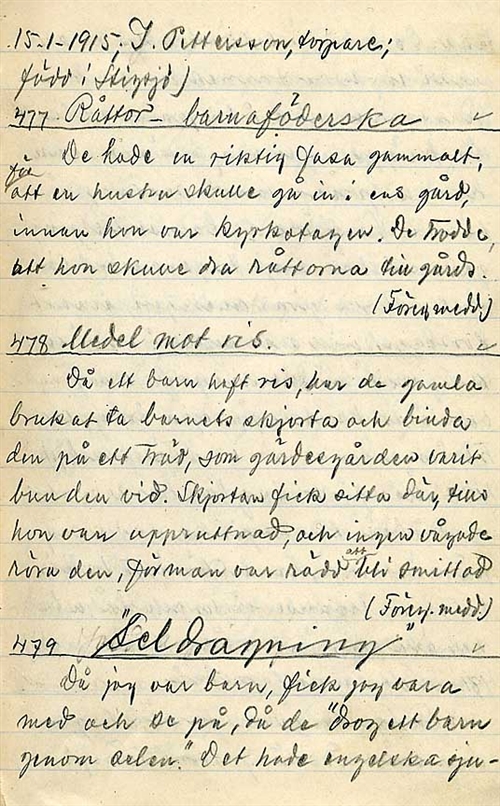 15-1-1915; J. Pettersson, torpare;
född i Stigsjö)
477 Råttor - barnaföderska
De hade en riktig fasa gammalt,
för
att en hustru skulle gå in i ens gård,
innan hon var kyrkotagen. De trodde,
att hon skulle dra råttorna till gårds.
(Föreg. medd.)
478 Medel mot ris.
Då ett barn haft ris, har de gamla
brukat ta barnets skjorta och binda
den på ett träd, som gärdesgården varit
bunden vid. Skjortan fick sitta där, tills
hon var uppruttnad, och ingen vågade
röra den, för man var rädd att bli smittad
(Föreg. medd.)
479 "Seldragning"
Då jag var barn, fick jag vara
med och se på, då de "drog ett barn
genom selen." Det hade engelska sju-